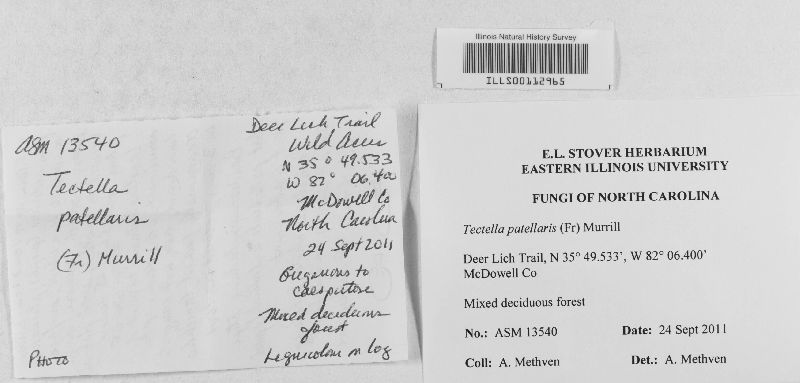 Illinois Natural History Survey
ILLS00112965
ASM 13540
Tectella
patellaris
(Fr) Murrill
PHOTO
Deer Lick Trail
Wild Acres
N 35° 49.533
W 82° 06.400
McDowell Co
North Carolina
24 Sept 2011
Gregarious to
caespitose
Mixed deciduous
forest
Lignicolous on log
E.L. STOVER HERBARIUM
EASTERN ILLINOIS UNIVERSITY
FUNGI OF NORTH CAROLINA
Tectella patellaris (Fr) Murrill
Deer Lich Trail, N 35° 49.533', W 82° 06.400'
McDowell Co
Mixed deciduous forest
No.: ASM 13540 Date: 24 Sept 2011
Coll: A. Methven Det.: A. Methven